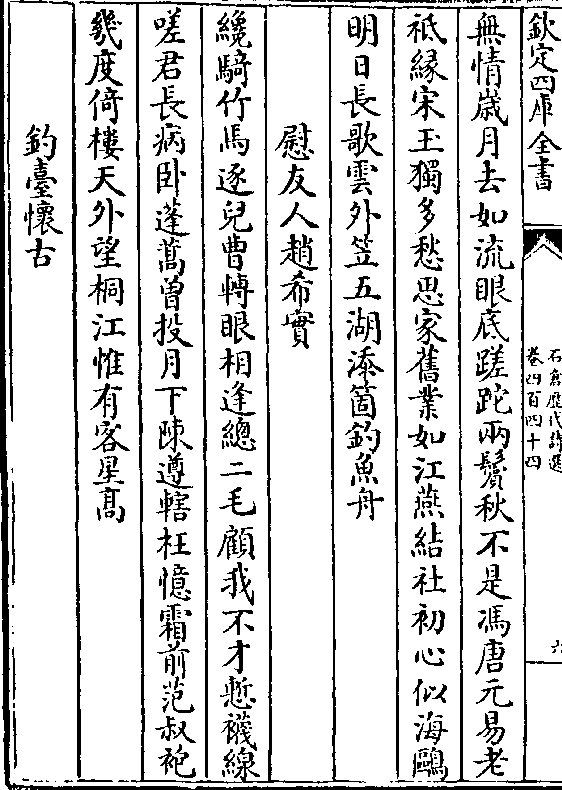 欽定四庫全書
石倉歷代詩選
卷四百四十四
六
無情歲月去如流眼底蹉跎兩鬢秋不是馮唐元易老
祗縁宋玉獨多愁思家舊業如江燕結社初心似海鷗
明日長歌雲外笠五湖添箇釣魚舟
慰友人趙希實
纔騎竹馬逐兒曹轉眼相逢總二毛顧我不才慙襪線
嗟君長病卧蓬蒿曽投月下陳遵轄枉憶霜前范叔袍
幾度倚樓天外望桐江惟有客星髙
釣臺懷古